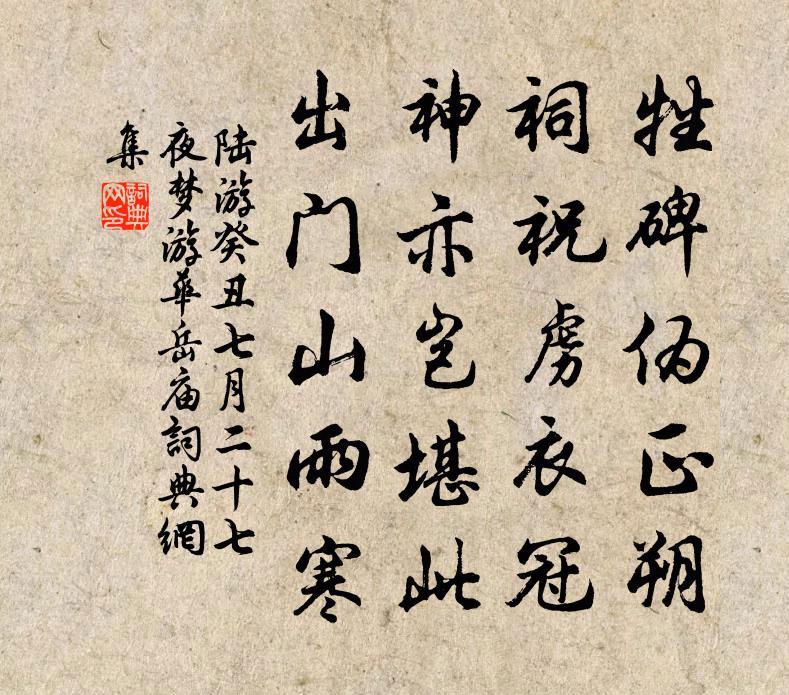 牲碑伪正朔
祠祝虏衣冠
神亦岂堪此
出门山雨寒
陆游癸丑七月二十七
夜梦游华岳庙詞典網
集
詞典
网印